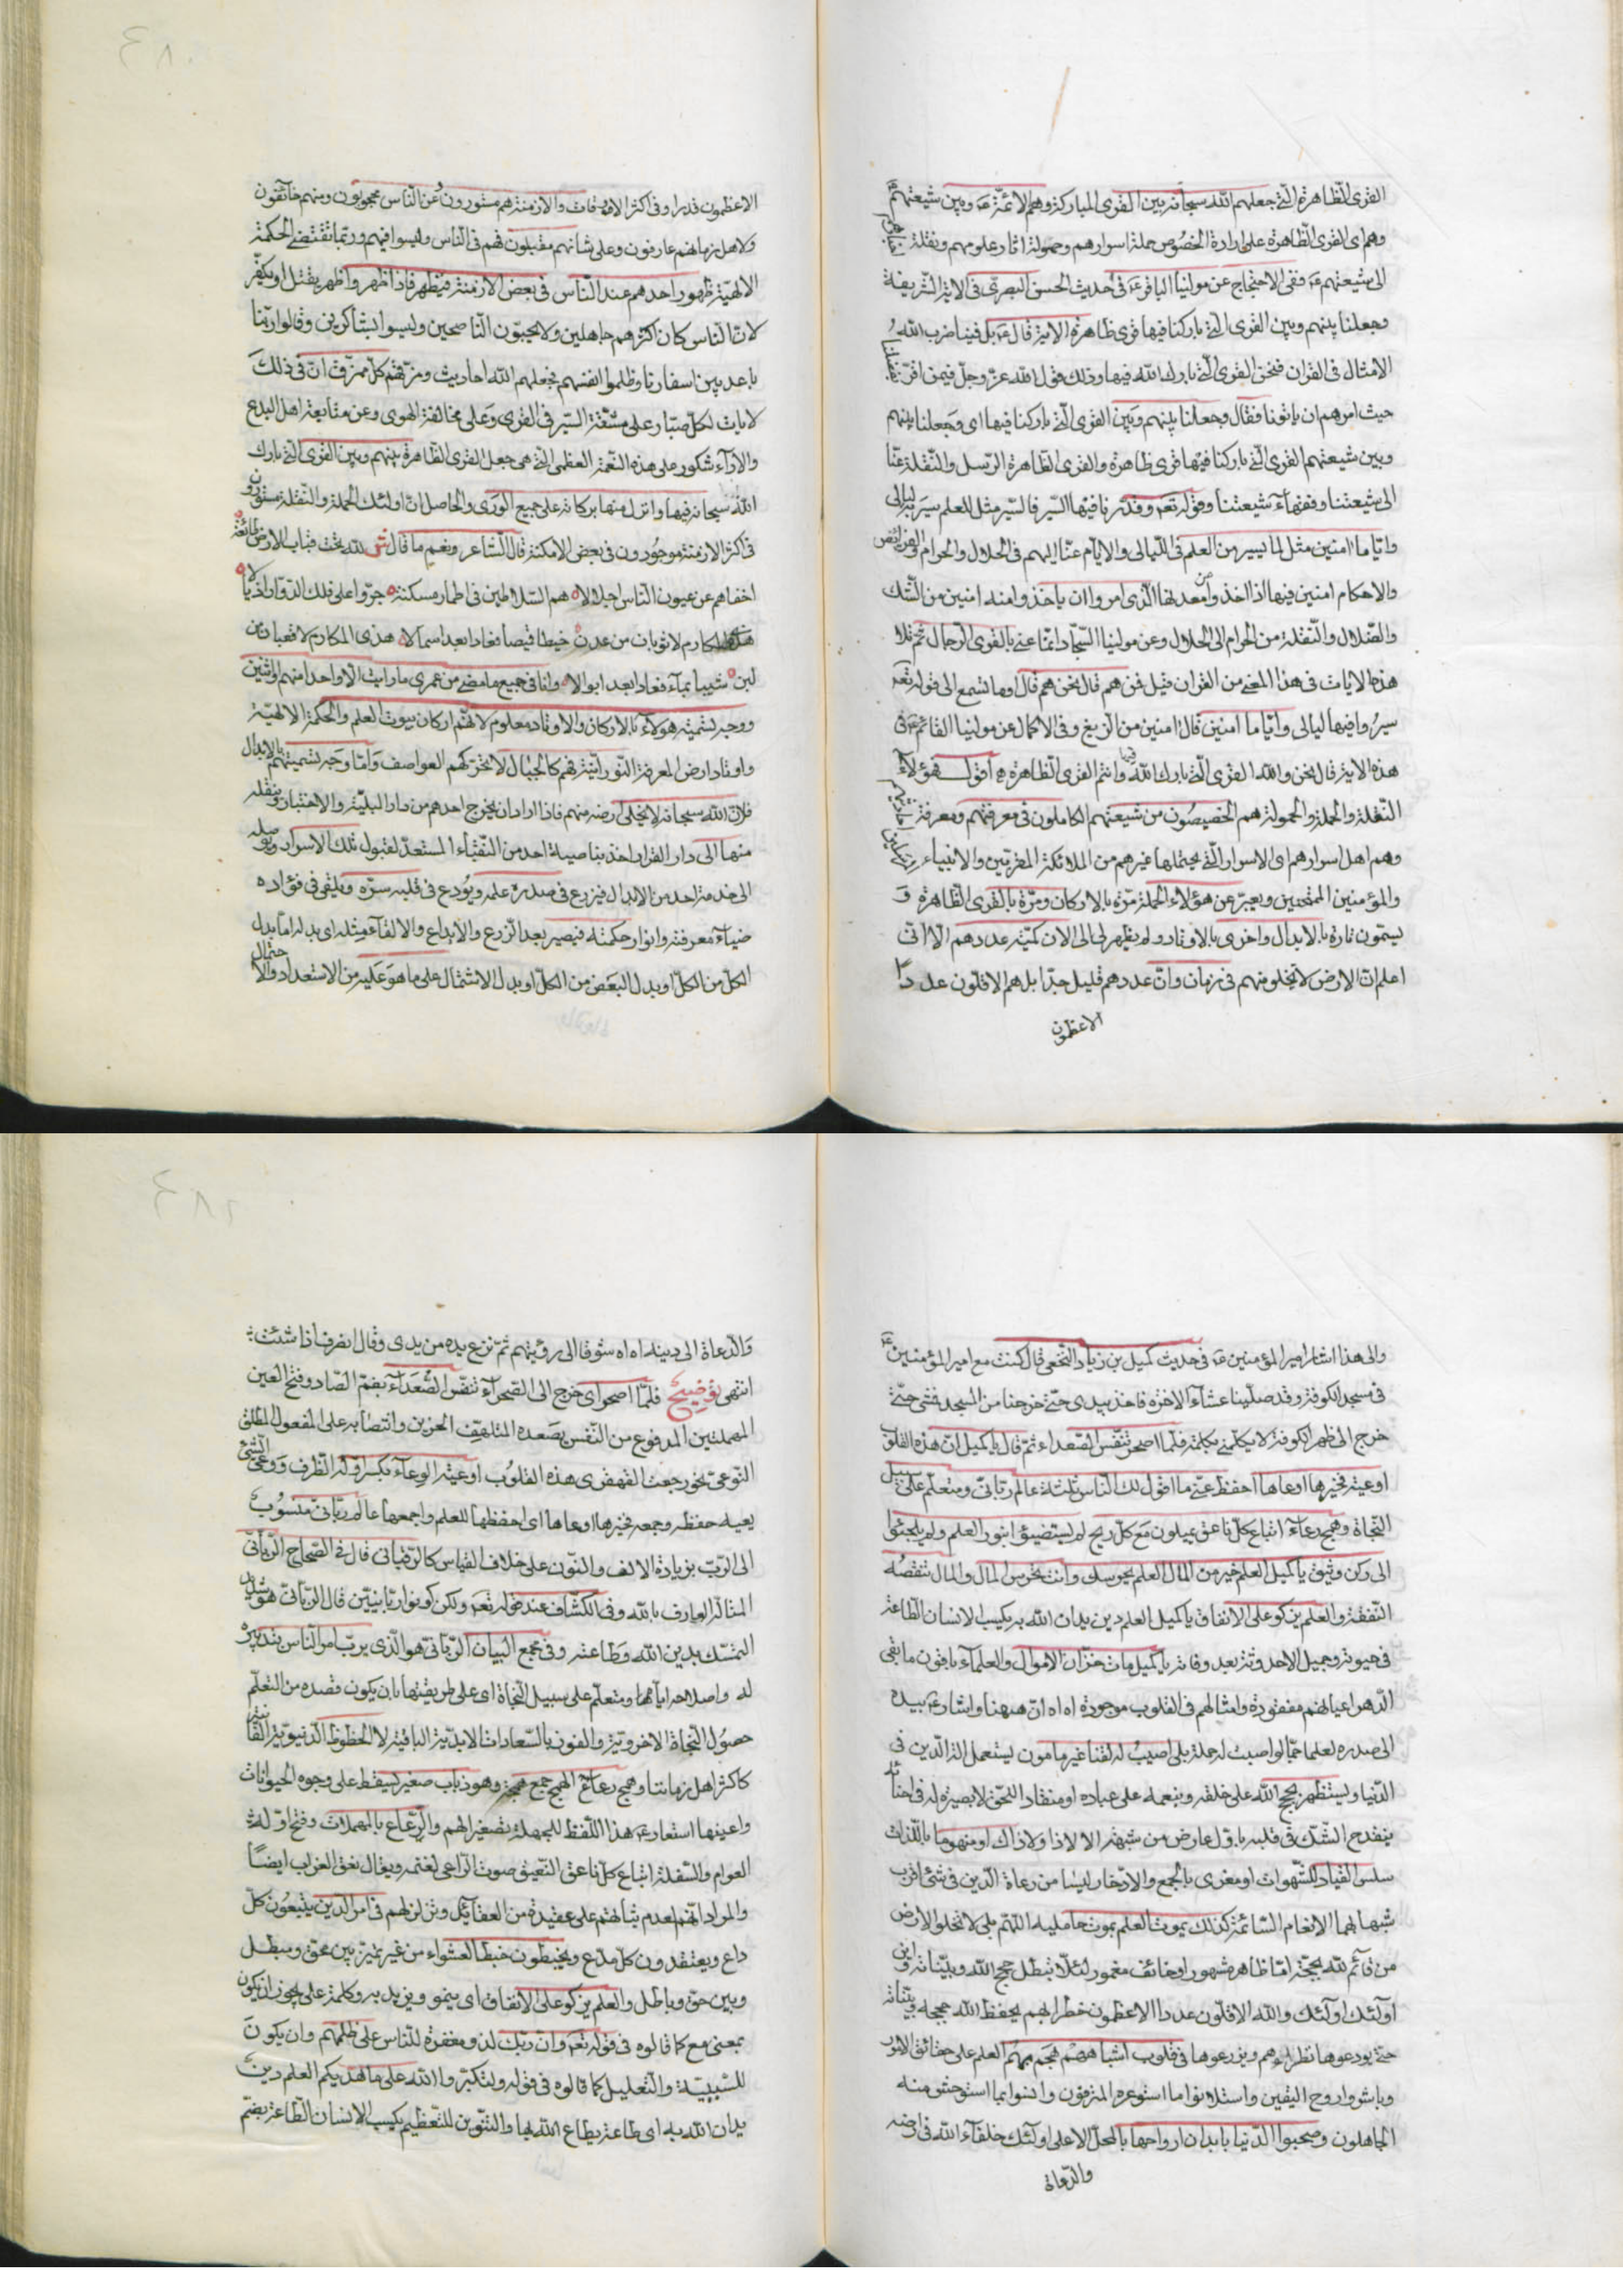 القرى الظاهرة الّتي جعلهم الله سبحانه بين القرى المباركة وهم الائمّة عه وبين شيعتهم
وهم اى القرى الظاهرة على ارادة الخصوص حملة اسرارهم وحمولة اثار علومهم ونقلة
الى شيعتهم عه ففى الاحتجاج عن مولينا الباقر عه فى حديث الحسن البصرى فى الاية الشريفة
وجعلنا بينهم وبين القرى الّتي باركنا فيها قرى ظاهرة الاية قال عه بل فينا ضرب الله
الامثال فى القران فنحن القرى الّتي بارك الله فيها وذلك قول الله عزّ وجلّ فيمن اقرّ
حيث امرهم ان ياتونا فقال وجعلنا بينهم وبين القرى الّتي باركنا فيها اى وجعلنا بينهم
وبين شيعتهم القرى الّتي باركنا فيها قرى ظاهرة والقرى الظاهرة الرّسل والنّقلة عنّا
الى شيعتنا وفقهاء شيعتنا وقوله تعه وقدّرنا فيها السّير فالسّير مثل للعلم سير به ليالى
وايّاما امنين مثل لما يسير من العلم فى اللّيالى والايّام عنّا اليهم فى الحلال والحرام والفرائض
والاحكام امنين فيها اذا اخذوا من معدنها الّذى امروا ان ياخذوا منه امنين من الشّك
والضّلال والنّقلة من الحرام الى الحلال وعن مولينا السّجّاد انّما عنى بالقرى الرّجال ثم تلا
هذه الايات فى هذا المعنى من القران قيل فمن هم قال نحن هم قال اوما تسمع الى قوله تعه
سيروا فيها ليالى وايّاما امنين قال امنين من الزّيغ وفى الاكمال عن مولينا القائم عه فى
هذه الاية قال نحن والله القرى الّتي بارك الله فيها وانتم القرى الظاهرة اقول فهؤلاء
النّقلة والحملة والحمولة هم الخصيصون من شيعتهم الكاملون فى معرفتهم ومعرفة
وهم اهل اسرارهم اى الاسرار الّتي يحتملها غيرهم من الملائكة المقرّبين والانبياء المرسلين
والمؤمنين الممتحنين ويعبّر عن هؤلاء الحملة مرّة بالاركان ومرّة بالقرى الظاهرة و
يسمّون تارة بالابدال واخرى بالاوتاد ولم يظهر لى الى الان كميّة عددهم الّا انّى
اعلم انّ الارض لا تخلو منهم فى زمان وانّ عددهم قليل جدّا بل هم الاقلّون عددا
الاعظمون
الاعظمون قدرا وفى اكثر الاوقات والازمنة هم مستورون عن النّاس محجوبون ومنهم خائفون
ولاهل زمانهم عارفون وعلى شانهم مقبلون فهم فى النّاس وليسوا فيهم وربّما تقتضى الحكمة
الالهيّة ظهور احدهم عند النّاس فى بعض الازمنة فيظهر فاذا ظهر واظهر يقتل او يكفّر
لانّ النّاس كان اكثرهم جاهلين ولا يحبّون النّاصحين وليسوا بشاكرين وقالوا ربّنا
باعد بين اسفارنا وظلموا انفسهم فجعلهم الله احاديث ومزّقهم كلّ ممزّق انّ فى ذلك
لايات لكلّ صبّار على مشقّة السّير فى القرى وعلى مخالفة الهوى وعن متابعة اهل البدع
والاراء شكور على هذه النّعمة العظمى الّتي هى جعل القرى الظاهرة بينهم وبين القرى الّتي بارك
الله سبحانه فيها وانزل منها بركاته على جميع الورى والحاصل انّ اولئك الحملة والنّقلة مستورون
فى اكثر الازمنة موجودون فى بعض الامكنة قال الشّاعر ونعم ما قال ش لله تحت قباب الارض طائفة
اخفاهم عن عيون النّاس اجلالا هم السّلاطين فى اطمار مسكنة جرّوا على فلك الدّوّار اذيالا
هذى المكارم لا ثوبان من عدن خيطا قميصا فعادا بعد اسمالا هذى المكارم لا قعبان من
لبن شيبا بماء فعادا بعد ابوالا وانا فى جميع ما مضى من عمرى ما رايت الّا واحدا منهم واثنين
ووجه تسمية هؤلاء بالاركان والاوتاد معلوم لانّهم اركان بيوت العلم والحكمة الالهيّة
واوتاد ارض المعرفة النّورانيّة فهم كالجبال لا تحرّكهم العواصف وامّا وجه تسميتهم بالابدال
فلانّ الله سبحانه لا يخلى ارضه منهم فاذا اراد ان يخرج احدهم من دار البليّة والاختبار وينقله
منها الى دار القرار اخذ بناصية احد من النّقباء المستعدّ لقبول تلك الاسرار ويوصله
الى خدمة احد من الابدال فيزرع فى صدره علمه ويودع فى قلبه سرّه ويلقى فى فؤاده
ضياء معرفته وانوار حكمته فيصير بعد الزّرع والايداع والالقاء مثله اى بدله امّا بدل
الكلّ من الكلّ او بدل البعض من الكلّ او بدل الاشتمال على ما هو عليه من الاستعداد والاحتمال
والى هذا اشار امير المؤمنين عه فى حديث كميل بن زياد النّخعى قال كنت مع امير المؤمنين عه
فى مسجد الكوفة وقد صلّينا عشاء الاخرة فاخذ بيدى حتّى خرجنا من المسجد فمشى حتّى
خرج الى ظهر الكوفة لا يكلّمنى بكلمة فلمّا اصحر تنفّس الصّعداء ثمّ قال يا كميل انّ هذه القلوب
اوعية فخيرها اوعاها احفظ عنّى ما اقول لك النّاس ثلثة عالم ربّانى ومتعلّم على سبيل
النّجاة وهمج رعاع اتباع كلّ ناعق يميلون مع كلّ ريح لم يستضيئوا بنور العلم ولم يلجئوا
الى ركن وثيق يا كميل العلم خير من المال العلم يحرسك وانت تحرس المال والمال تنقصه
النّفقة والعلم يزكو على الانفاق يا كميل العلم دين يدان الله به يكسب الانسان الطّاعة
فى حيوته وجميل الاحدوثة بعد وفاته يا كميل مات خزّان الاموال والعلماء باقون ما بقى
الدّهر اعيانهم مفقودة وامثالهم فى القلوب موجودة اه اه انّ ههنا واشار عه بيده
الى صدره لعلما جمّا لو اصبت له حملة بلى اصيب له لقنا غير مامون يستعمل الة الدّين فى
الدّنيا ويستظهر بحجج الله على خلقه وبنعمه على عباده او منقادا للحقّ لا بصيرة له فى احنائه
ينقدح الشّك فى قلبه باوّل عارض من شبهة الا لا ذا ولا ذاك او منهوما باللّذات
سلس القياد للشّهوات او مغرى بالجمع والادّخار ليسا من رعاة الدّين فى شئ اقرب
شبها بهما الانعام السّائمة كذلك يموت العلم بموت حامليه اللّهمّ بلى لا تخلو الارض
من قائم لله بحجّة امّا ظاهر مشهور او خائف مغمور لئلّا تبطل حجج الله وبيّناته واين
اولئك اولئك والله الاقلّون عددا الاعظمون خطرا بهم يحفظ الله حججه وبيّناته
حتّى يودعوها نظراءهم ويزرعوها فى قلوب اشباههم هجم بهم العلم على حقائق الامور
وباشروا روح اليقين واستلانوا ما استوعره المترفون وانسوا بما استوحش منه
الجاهلون وصحبوا الدّنيا بابدان ارواحها بالمحلّ الاعلى اولئك خلفاء الله فى ارضه
والدّعاة
والدّعاة الى دينه اه اه شوقا الى رؤيتهم ثمّ نزع يده من يدى وقال انصرف اذا شئت
انتهى توضيح فلمّا اصحر اى خرج الى الصّحراء تنفّس الصّعداء بضمّ الصّاد وفتح العين
المهملتين المدفوع من النّفس يصعده المتلهّف الحزين وانتصابه على المفعول المطلق
النّوعى نحو رجعت القهقرى هذه القلوب اوعية الوعاء بكسر اوّله الظّرف ووعى الشئ
يعيه حفظه وجمعه فخيرها اوعاها اى احفظها للعلم واجمعها عالم ربّانى منسوب
الى الرّبّ بزيادة الالف والنّون على خلاف القياس كالرّقبانى قال فى الصّحاح الرّبّانى
المتالّه العارف بالله وفى الكشّاف عند قوله تعه ولكن كونوا ربّانيّين قال الرّبّانى هو شديد
التمسّك بدين الله وطاعته وفى مجمع البيان الرّبّانى هو الّذى يربّ امر النّاس بتدبيره
له واصلاحه ايّاه ومتعلّم على سبيل النّجاة اى على طريقتها بان يكون قصده من التعلّم
حصول النّجاة الاخرويّة والفوز بالسّعادات الابديّة الباقية لا الحظوظ الدّنيويّة الفانية
كاكثر اهل زماننا وهمج رعاع الهمج جمع همجة وهو ذباب صغير يسقط على وجوه الحيوانات
واعينها استعار عه هذا اللّفظ للجهلة تصغيرا لهم والرّعاع بالمهملات وفتح اوّله
العوام والسّفلة اتباع كلّ ناعق النّعيق صوت الرّاعى لغنمه ويقال نغق الغراب ايضا
والمراد انّهم لعدم ثباتهم على عقيدة من العقائد وتزلزلهم فى امر الدّين يتّبعون كلّ
داع ويعتقدون كلّ مدّع ويخبطون خبط العشواء من غير تميّز بين محقّ ومبطل
وبين حقّ وباطل والعلم يزكو على الانفاق اى ينمو ويزيد به وكلمة على يجوز ان يكون
بمعنى مع كما قالوه فى قوله تعه وانّ ربّك لذو مغفرة للنّاس على ظلمهم وان يكون
للسّببيّة والتّعليل كما قالوه فى قوله ولتكبّروا الله على ما هديكم العلم دين
يدان الله به اى طاعة يطاع الله بها والتّنوين للتّعظيم يكسب الانسان الطّاعة بضمّ